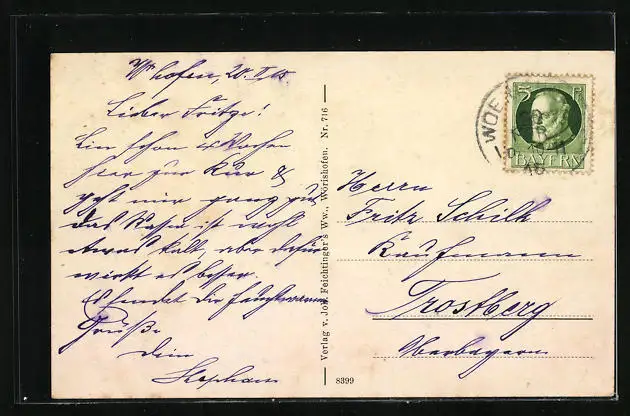 W'hofen, 20. II 16
Lieber Fritze!
Bin schon Wochen
hier zur Kur &
geht mir ganz gut
das Wasser ist wohl
etwas kalt, aber dafür
wirkt es besser.
Es sendet die
Grüße
Dein
Stephan
Verlag v. Joh. Feichtinger's Ww., Wörishofen. Nr. 716
8399
WOE
16
5 Pf
BAYERN
Herrn
Fritz Schilk
Kaufmann
Trostberg
Oberbayern